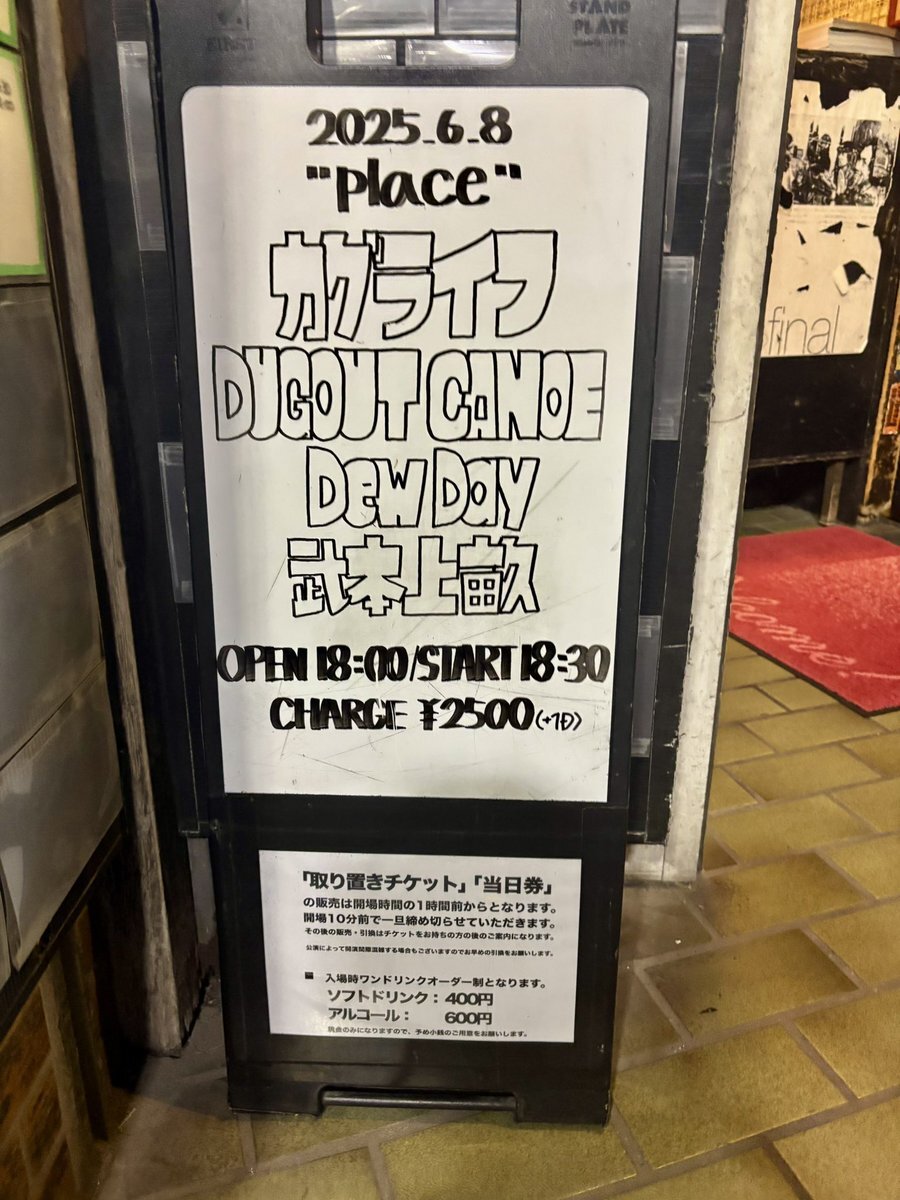 STAND
PLATE
2025.6.8
"place"
カグライフ
DUGOUT CANOE
Dew Day
武本上畝
OPEN 18:00/START 18:30
CHARGE ¥2500(+1D)
「取り置きチケット」「当日券」
の販売は開場時間の1時間前からとなります。
開場10分前で一旦締め切らせていただきます。
その後の販売・引換はチケットをお持ちの方の後のご案内になります。
公演によって開演間際混雑する場合もございますのでお早めの引換をお願いします。
■ 入場時ワンドリンクオーダー制となります。
ソフトドリンク：400円
アルコール： 600円
現金のみになりますので、予め小銭のご用意をお願いします。
final